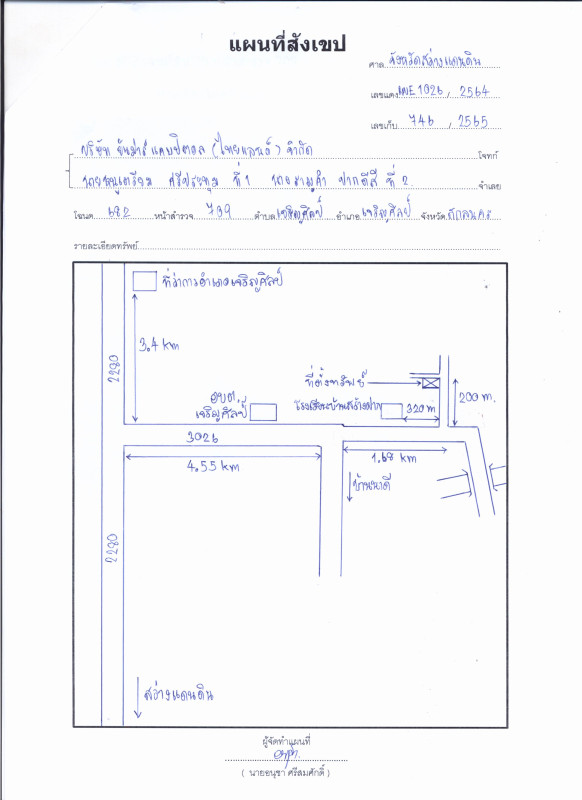 แผนที่สังเขป
ศาล จังหวัดสว่างแดนดิน
เลขแดง ผบE1026, 2564
เลขเก็บ 746, 2565
บริษัท ยันม่าร์ แคปปิตอล (ไทยแลนด์) จำกัด โจทก์
ศรีประทุม ที่ 1 ที่ 2 จำเลย
โฉนด 682 หน้าสำรวจ 709 ตำบล เจริญศิลป์ อำเภอ เจริญศิลป์ จังหวัด สกลนคร
รายละเอียดทรัพย์
ที่ว่าการอำเภอเจริญศิลป์
3.4 km
2280
ที่ตั้งทรัพย์
อบต.
เจริญศิลป์
โรงเรียนบ้าน
320 m
200 m.
3026
4.55 km
1.68 km
บ้านนาดี
2280
สว่างแดนดิน
ผู้จัดทำแผนที่
( นายอนุชา ศรีสมศักดิ์ )